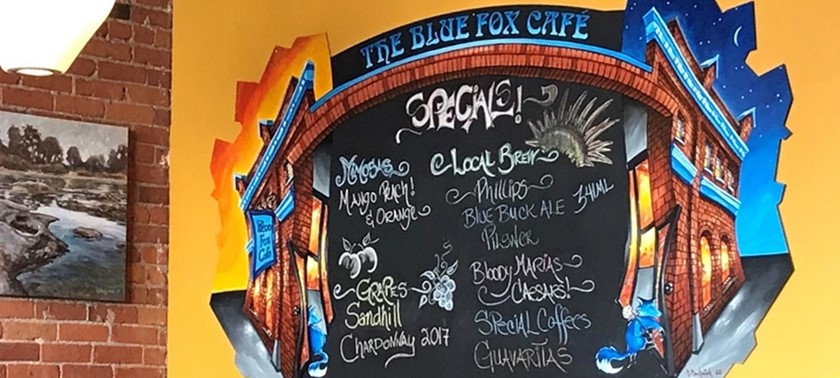 THE BLUE FOX CAFÉ
SPECIALS!
MIMOSAS
MANGO PEACH!
& ORANGE
GRAPES
Sandhill
CHARDONNAY 2017
LOCAL BREW
PHILLIPS
341ML
BLUE BUCK ALE
PILSNER
BLOODY MARIAS
CAESARS!
SPECIAL COFFEES
GUAVARITAS
BLUE
FOX
CAFÉ